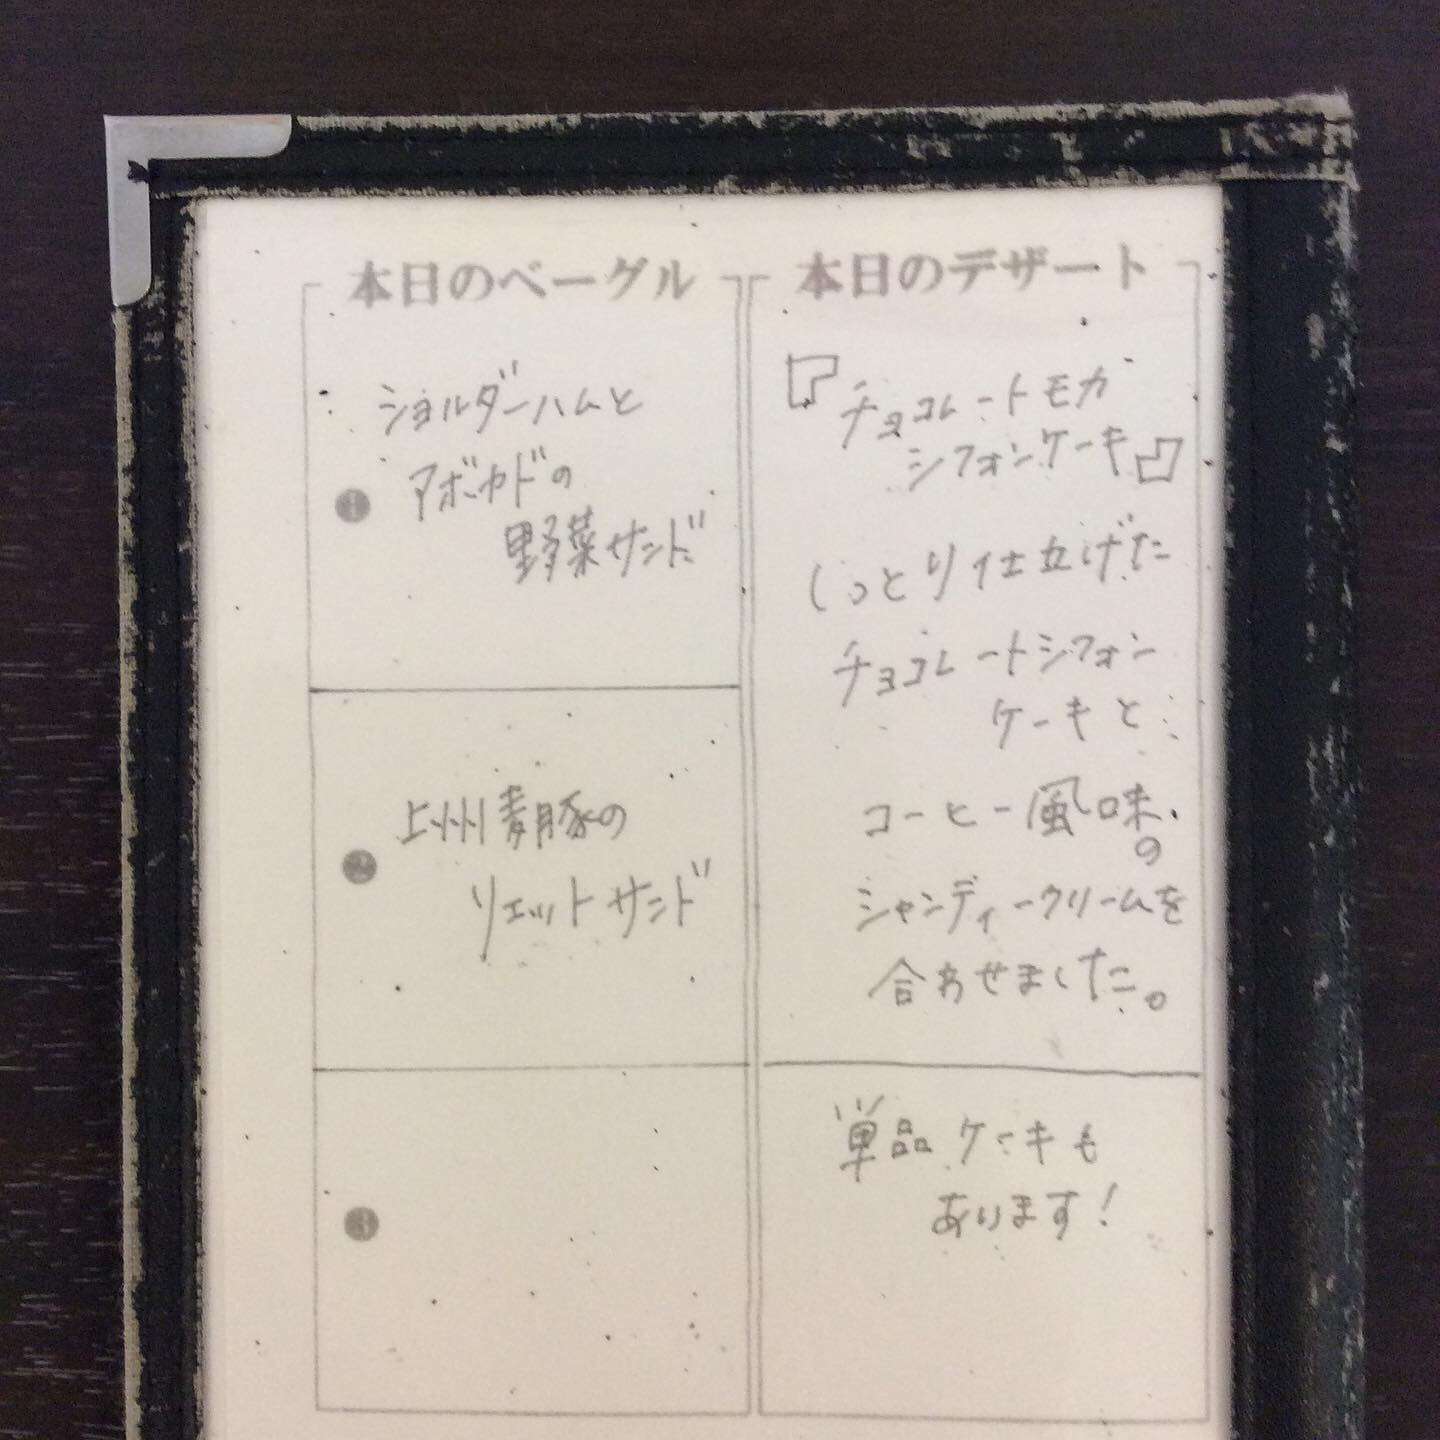 本日のベーグル
1
ショルダーハムと
アボカドの
野菜サンド
2
上州麦豚の
リエットサンド
3
本日のデザート
『チョコレートモカ
シフォンケーキ』
しっとり仕立げた
チョコレートシフォン
ケーキと
コーヒー風味の
シャンディークリームを
合わせました。
単品ケーキも
あります!